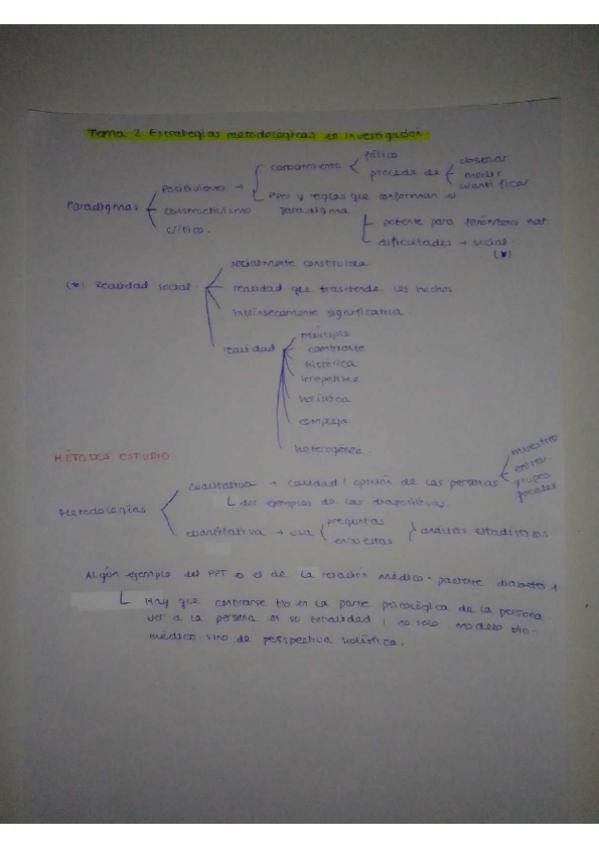 Tema 2. Estrategias metodológicas en investigación.
Paradigmas
Positivismo →
constructivismo
crítico.
conocimiento
fáctico
procede de
observar
medir
cuantificar
Ppios y reglas que conforman el
paradigma
potente para fenómenos nat
dificultades → social.
(*)
(*) Realidad social
socialmente construida
realidad que trasciende los hechos
intrínsecamente significativa
realidad
múltiple
cambiante
histórica
irrepetible
holística
compleja
heterogénea.
MÉTODOS ESTUDIO
Metodologías
cualitativa → calidad / opinión de las personas
muestreo
entrev.
grupos
focales
ver ejemplos de las diapositivas.
cuantitativa → usa
preguntas
encuestas
análisis estadísticos
Algún ejemplo del PPT o el de la relación médico-paciente diabetes 1
Hay que centrarse tb en la parte psicológica de la persona
ver a la persona en su totalidad / no solo modelo bio-
médico sino de perspectiva holística.